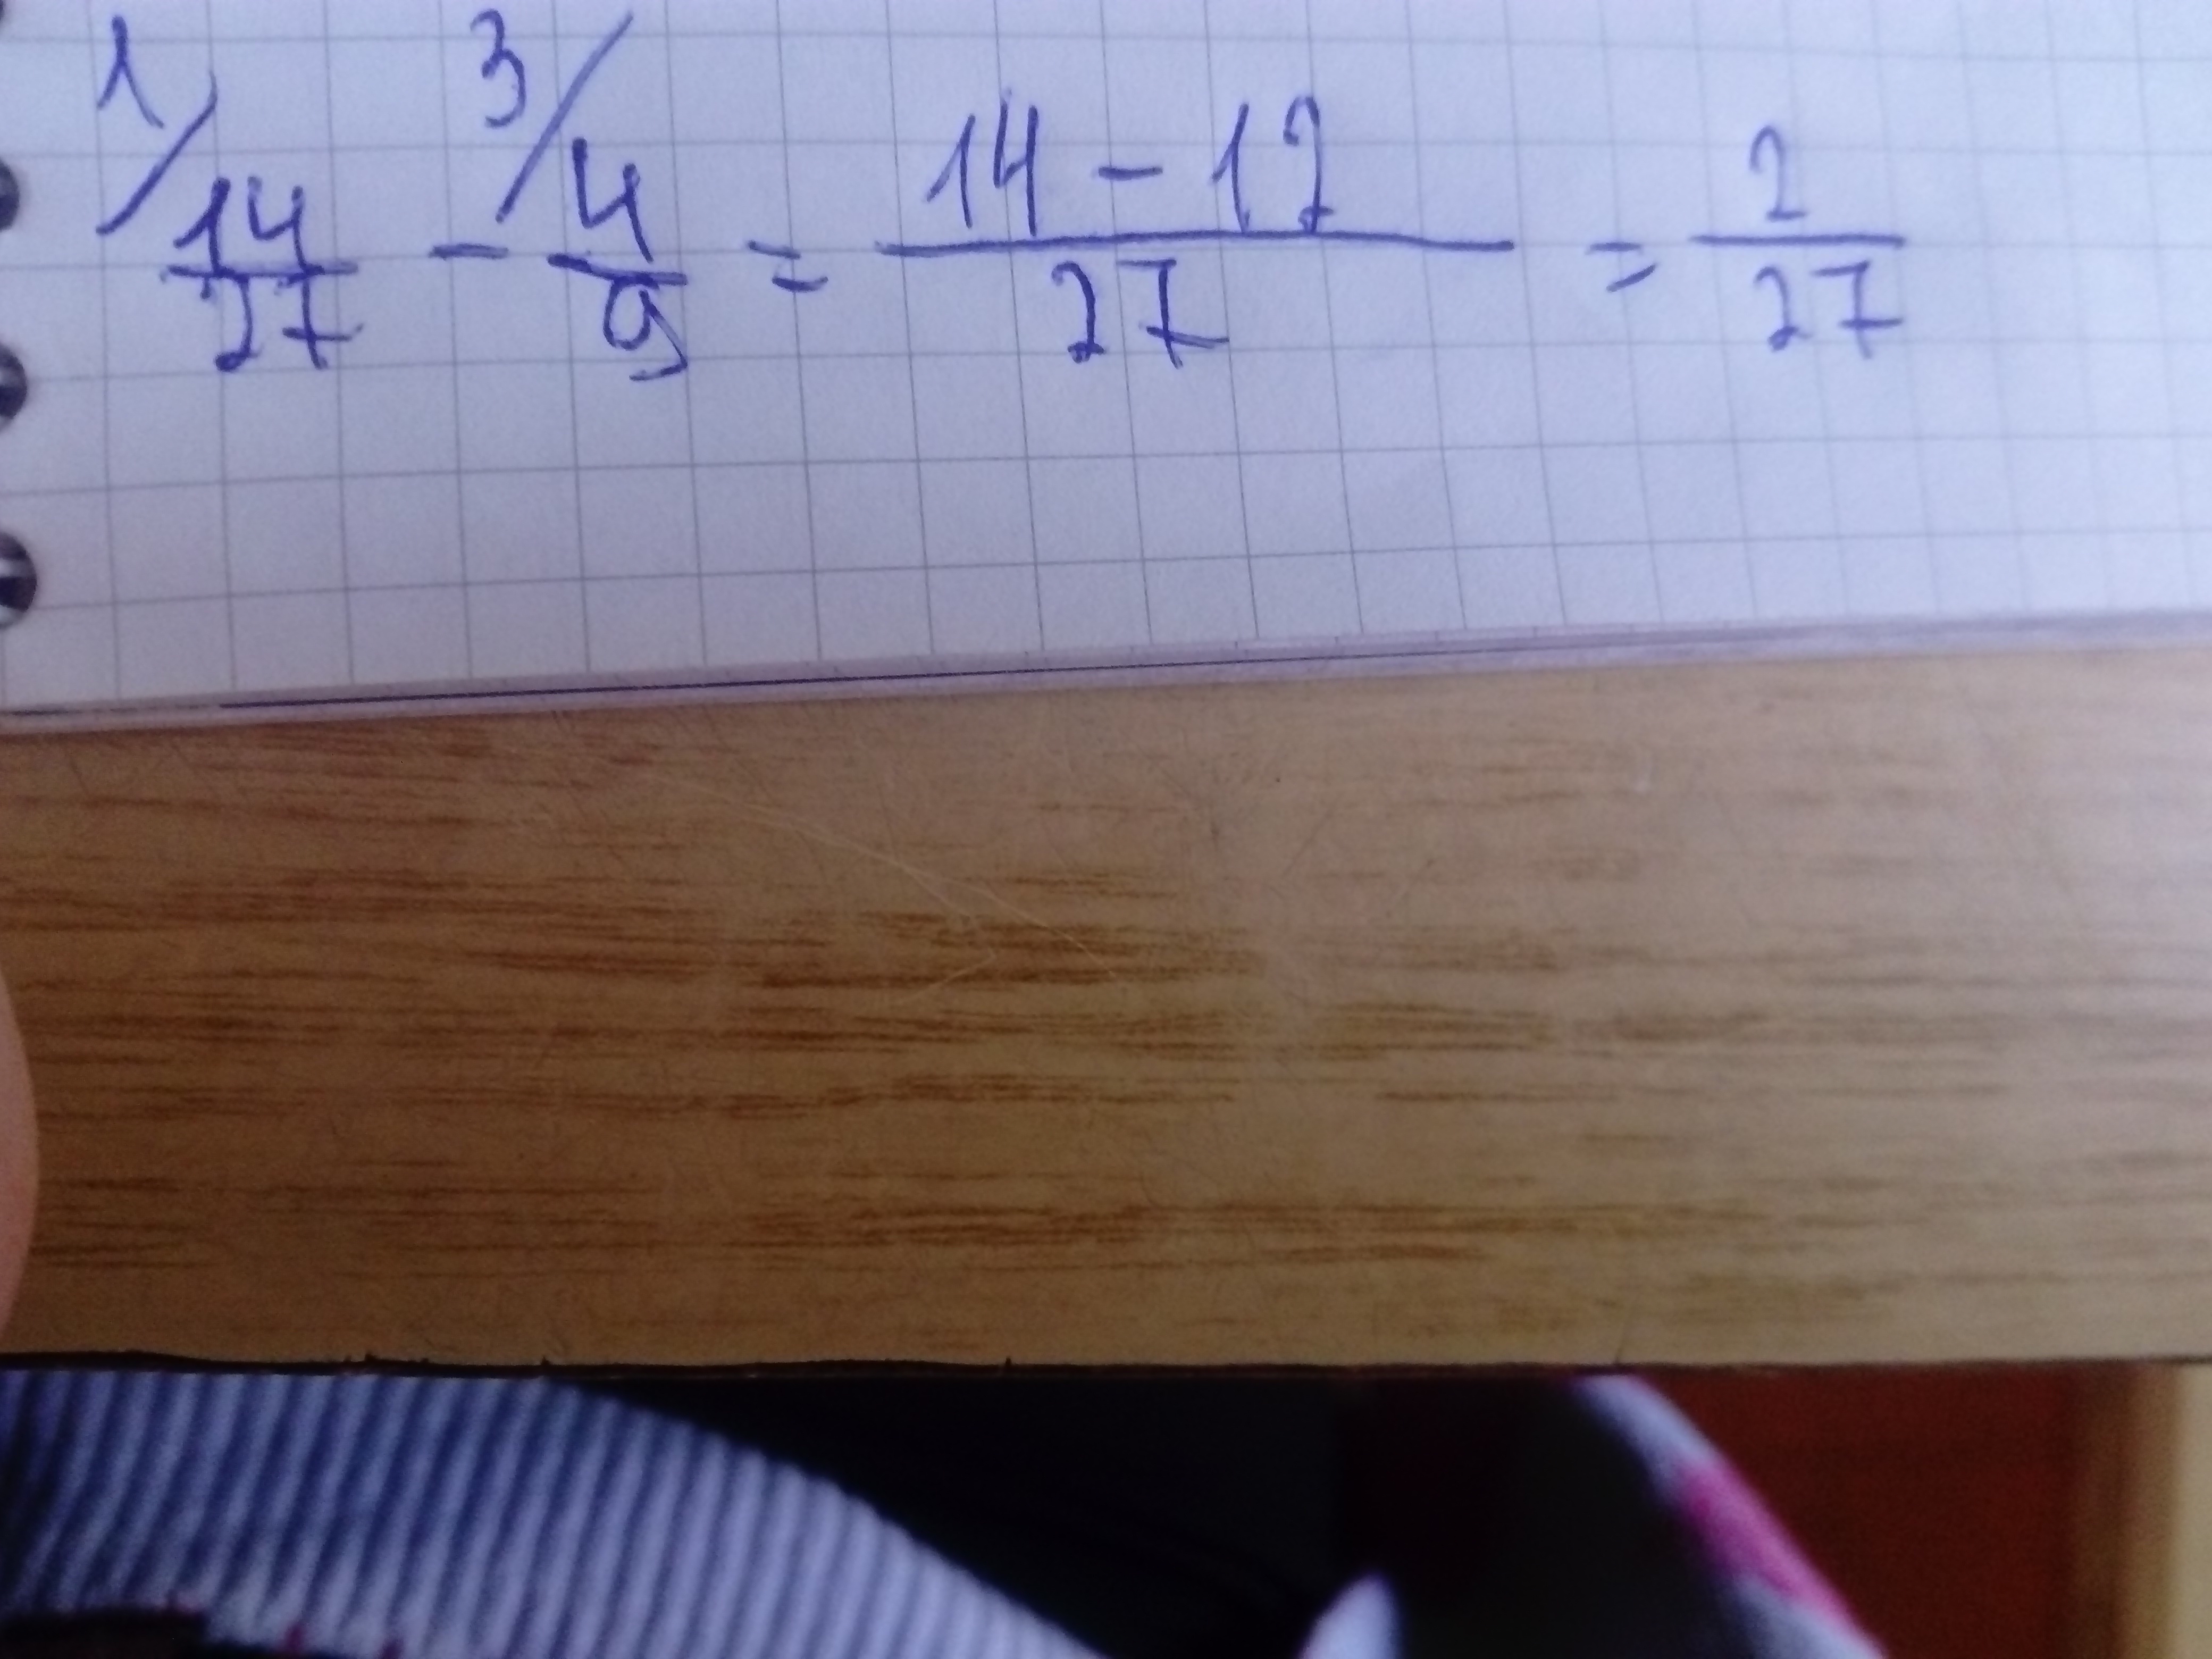 1/ 14/27 - 3/ 4/9 = 14-12/27 = 2/27